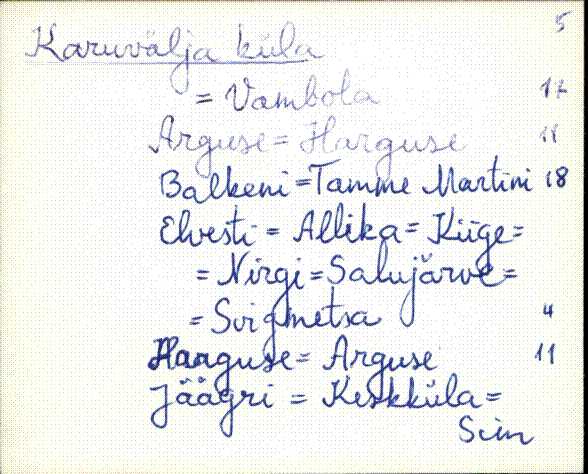 5
Karuvälja küla
= Vambola 17
Arguse = Harguse 11
Balkeni = Tamme Martini 18
Elvesti = Allika = Kiige =
= Nirgi = Salujärve =
= Soigmetsa 4
Haaguse = Arguse 11
Jäägri = Keskküla =
Sim